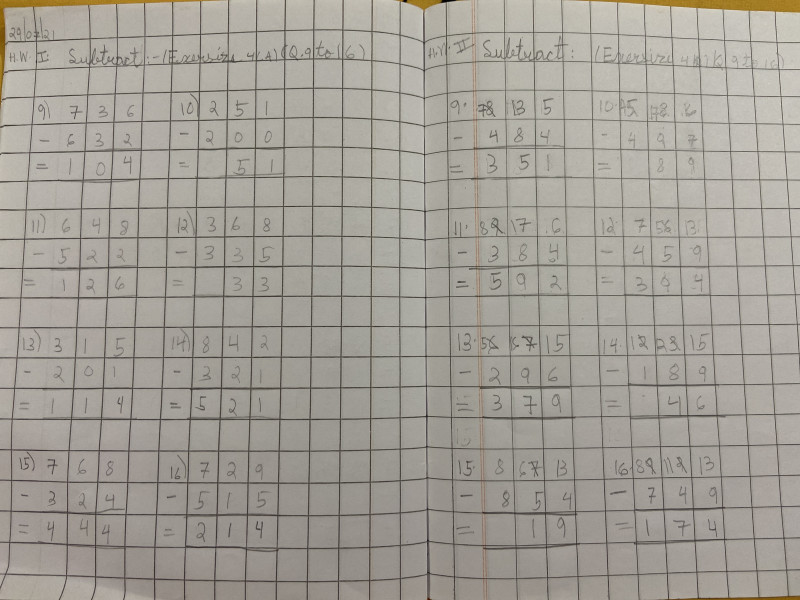 29/07/21
H.W. I: Subtract:- (Exersize 4(A)(Q.9 to 16)
9) 7 3 6 10) 2 5 1
- 6 3 2 - 2 0 0
= 1 0 4 = 5 1
11) 6 4 8 12) 3 6 8
- 5 2 2 - 3 3 5
= 1 2 6 = 3 3
13) 3 1 5 14) 8 4 2
- 2 0 1 - 3 2 1
= 1 1 4 = 5 2 1
15) 7 6 8 16) 7 2 9
- 3 2 4 - 5 1 5
= 4 4 4 = 2 1 4
H.W. II Subtract: (Exersize
9. 13 5 10.
- 4 8 4 - 4 9 7
= 3 5 1 = 8 9
11. 17 6 12. 7 13
- 3 8 4 - 4 5 9
= 5 9 2 = 3 4
13. 15 14. 15
- 2 9 6 - 1 8 9
= 3 7 9 = 4 6
15. 8 13 16. 13
- 8 5 4 - 7 4 9
= 1 9 = 1 7 4